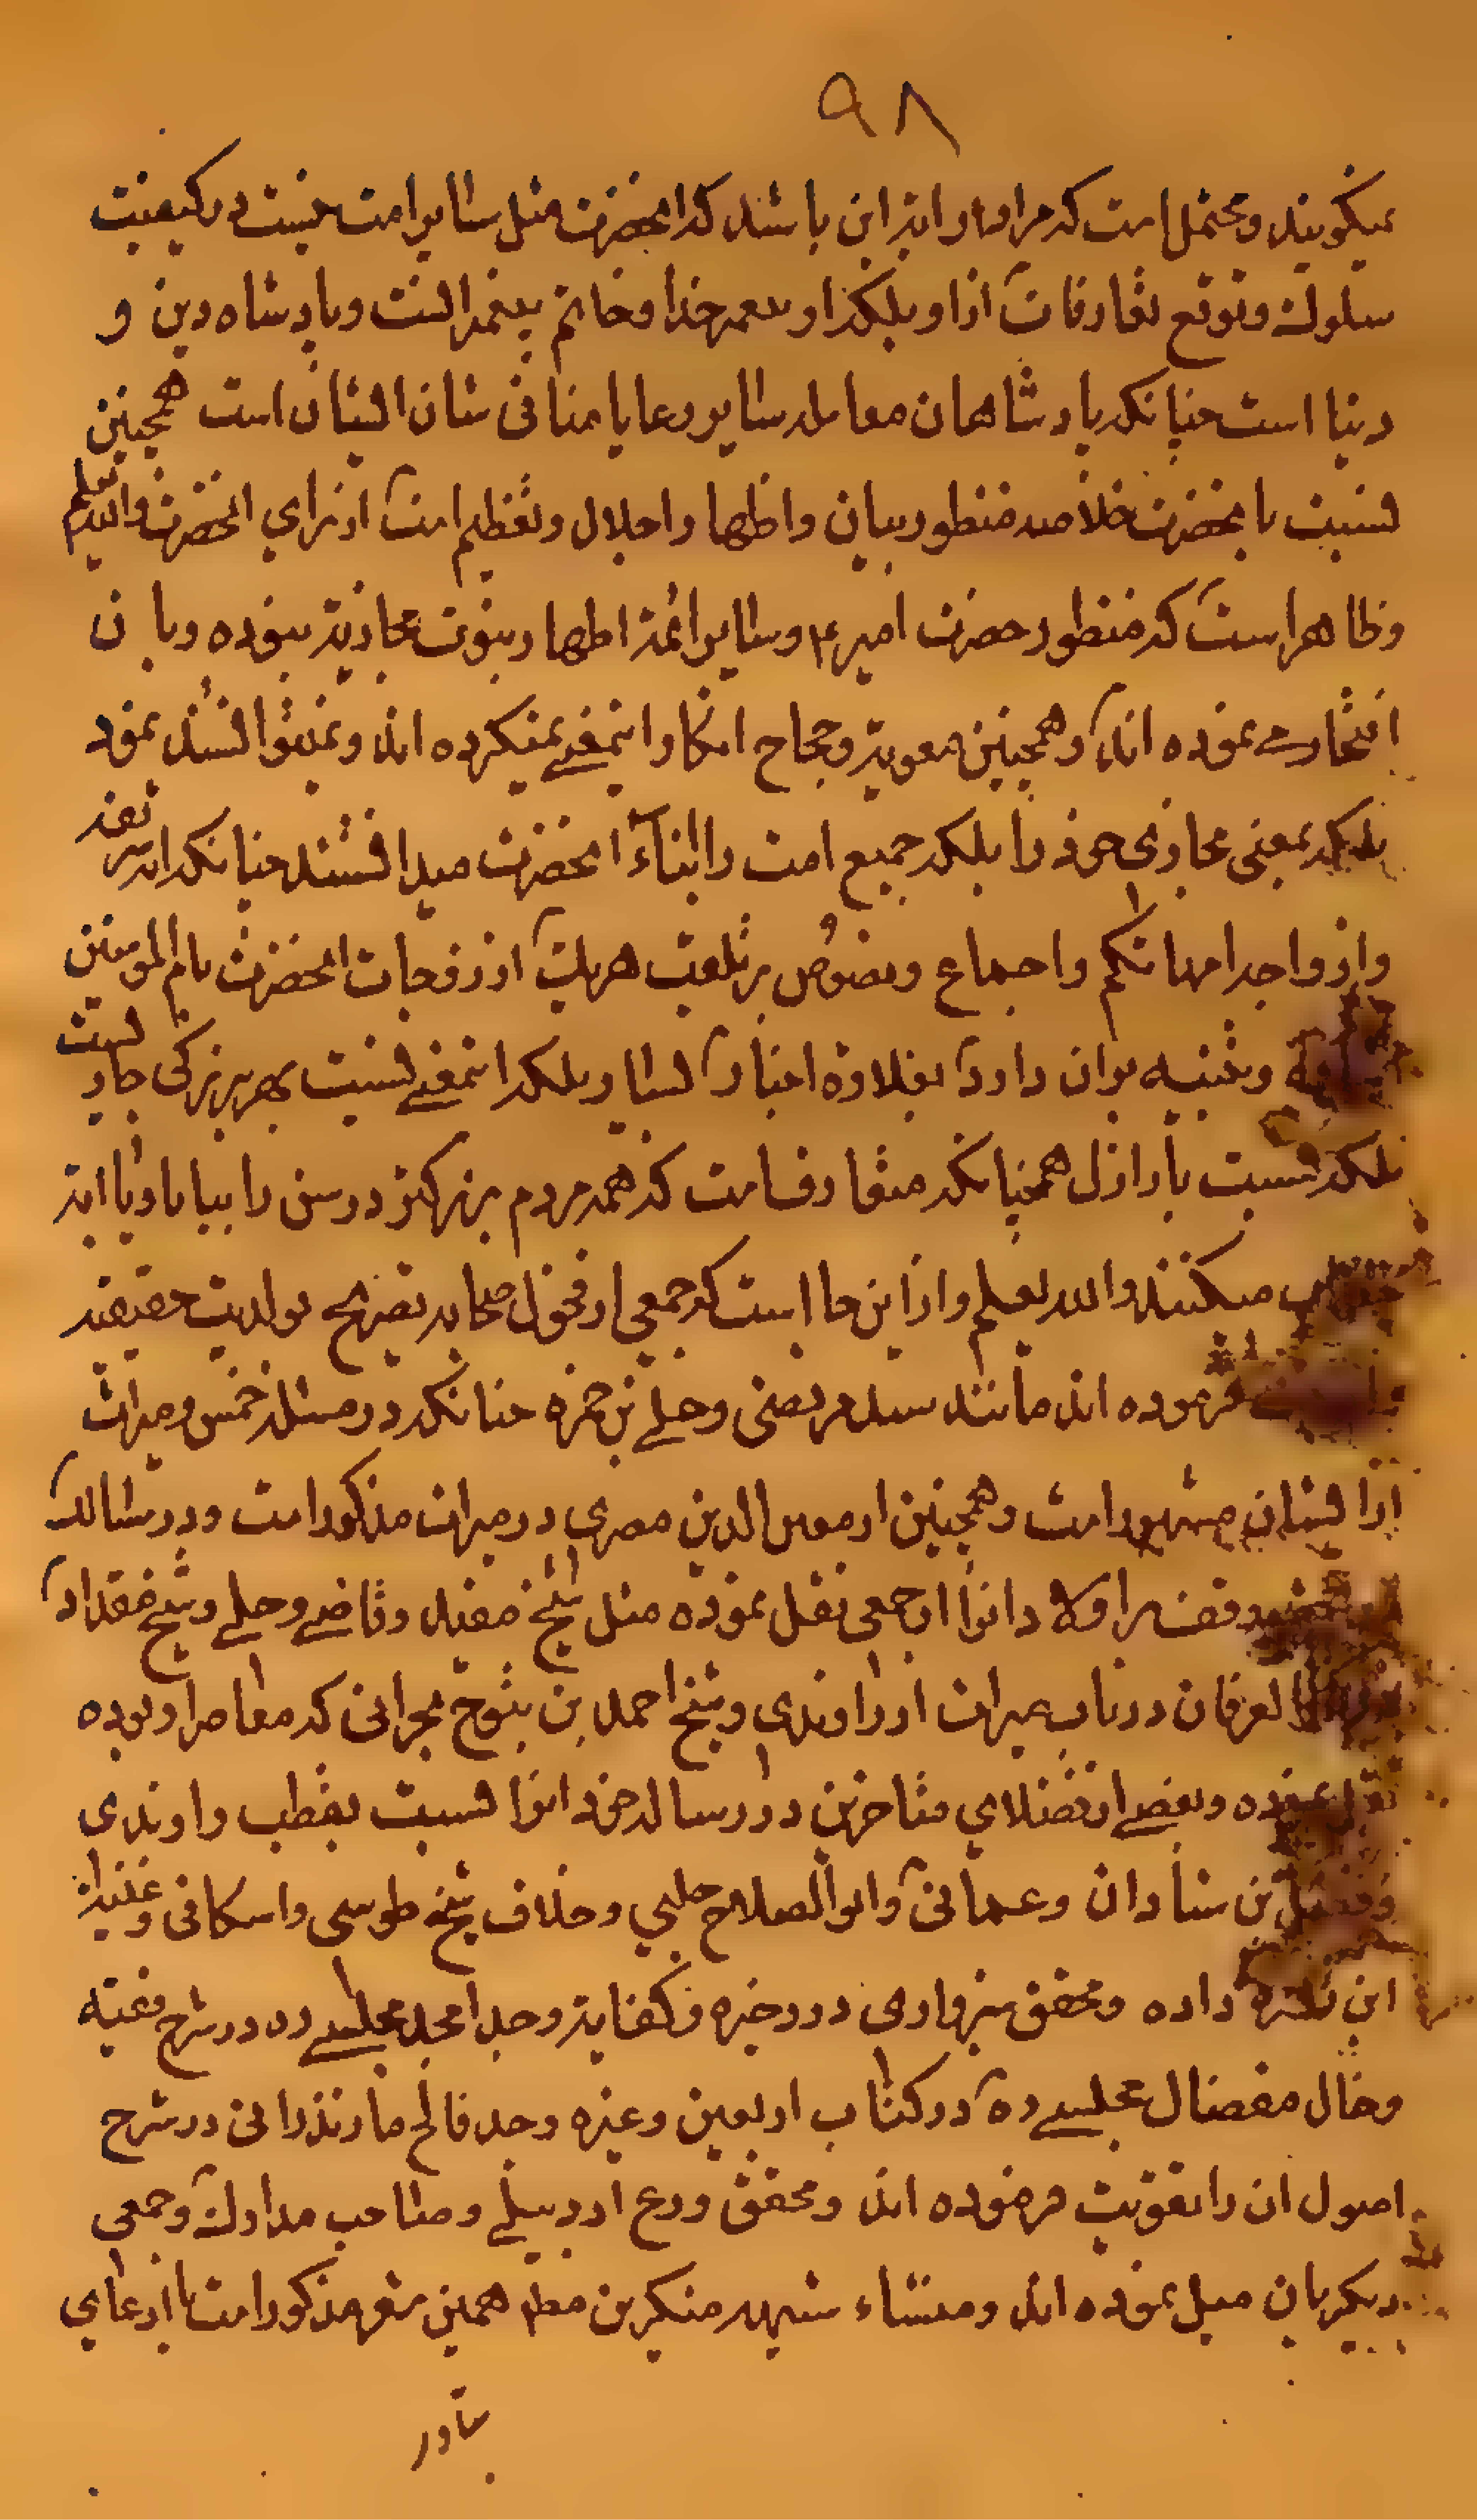 ۹۸
میگویند و محتمل است که مراد از ایه این باشد که انحضرت مثل سایر امت نیست در کیفیت
سلوک و توقع تعارفات از او بلکه او پیغمبر خدا و خاتم پیغمبرانست و پادشاه دین و
دنیا است چنانکه پادشاهان معامله سایر رعایا منافی شان ایشان است همچنین
نسبت بانحضرت خلاصه منظور بیان و اظهار اجلال و تعظیم است از برای انحضرت والله یعلم
و ظاهر است که منظور حضرت امیر ع و سایر ائمه اطهار بنوت مجازیه نبوده و بان
افتخار نمی نموده اند و همچنین معویة و حجاج انکار اینمعنی نمیکرده اند و نمیتوانستند نمود
بلکه بمعنی مجازی خود را بلکه جمیع امت را ابناء انحضرت میدانستند چنانکه ایه
وازواجه امهاتکم و اجماع و نصوص بر تلقب هریک از زوجات انحضرت بام المومنین
و تنبیه بران دارد بعلاوه اخبار بسیار بلکه اینمعنی نسبت بهر بزرگی جاریست
بلکه نسبت باراذل همچنانکه متعارفست که همه مردم بزرکتر در سن را ببابا و یا ابه
میکنند والله یعلم و از این جا است که جمعی از فحول صحابه تصریح بولدیت حقیقیه
فرموده اند مانند سید مرتضی و حلی بن حمزه چنانکه در مسئله خمس و میراث
از ایشان مشهور است و همچنین از معین الدین مصری در میراث مذکور است و در رساله
وقف بر اولاد انرا از جمعی نقل نموده مثل شیخ مفید و قاضی و حلی و شیخ مقداد
العرفان در باب میراث از راوندی و شیخ احمد بن متوج بحرانی که معاصر او بوده
نقل نموده و بعضی از فضلای متاخرین در رساله خود انرا نسبت بقطب راوندی
و فضل بن شاذان و عمانی و ابو الصلاح حلبی و خلاف شیخ طوسی و اسکافی و غنیه
ابن زهره داده و محقق سبزواری در ذخیره و کفایة و جد امجد مجلسی ره در شرح فقیه
و خال مفضال مجلسی ره در کتاب اربعین و غیره و جد صالح مازندرانی در شرح
اصول ان را تقویت فرموده اند و محقق ورع اردبیلی و صاحب مدارک و جمعی
دیگر بان میل نموده اند و منشاء شبهه منکرین همین شعر مذکور است با ادعای